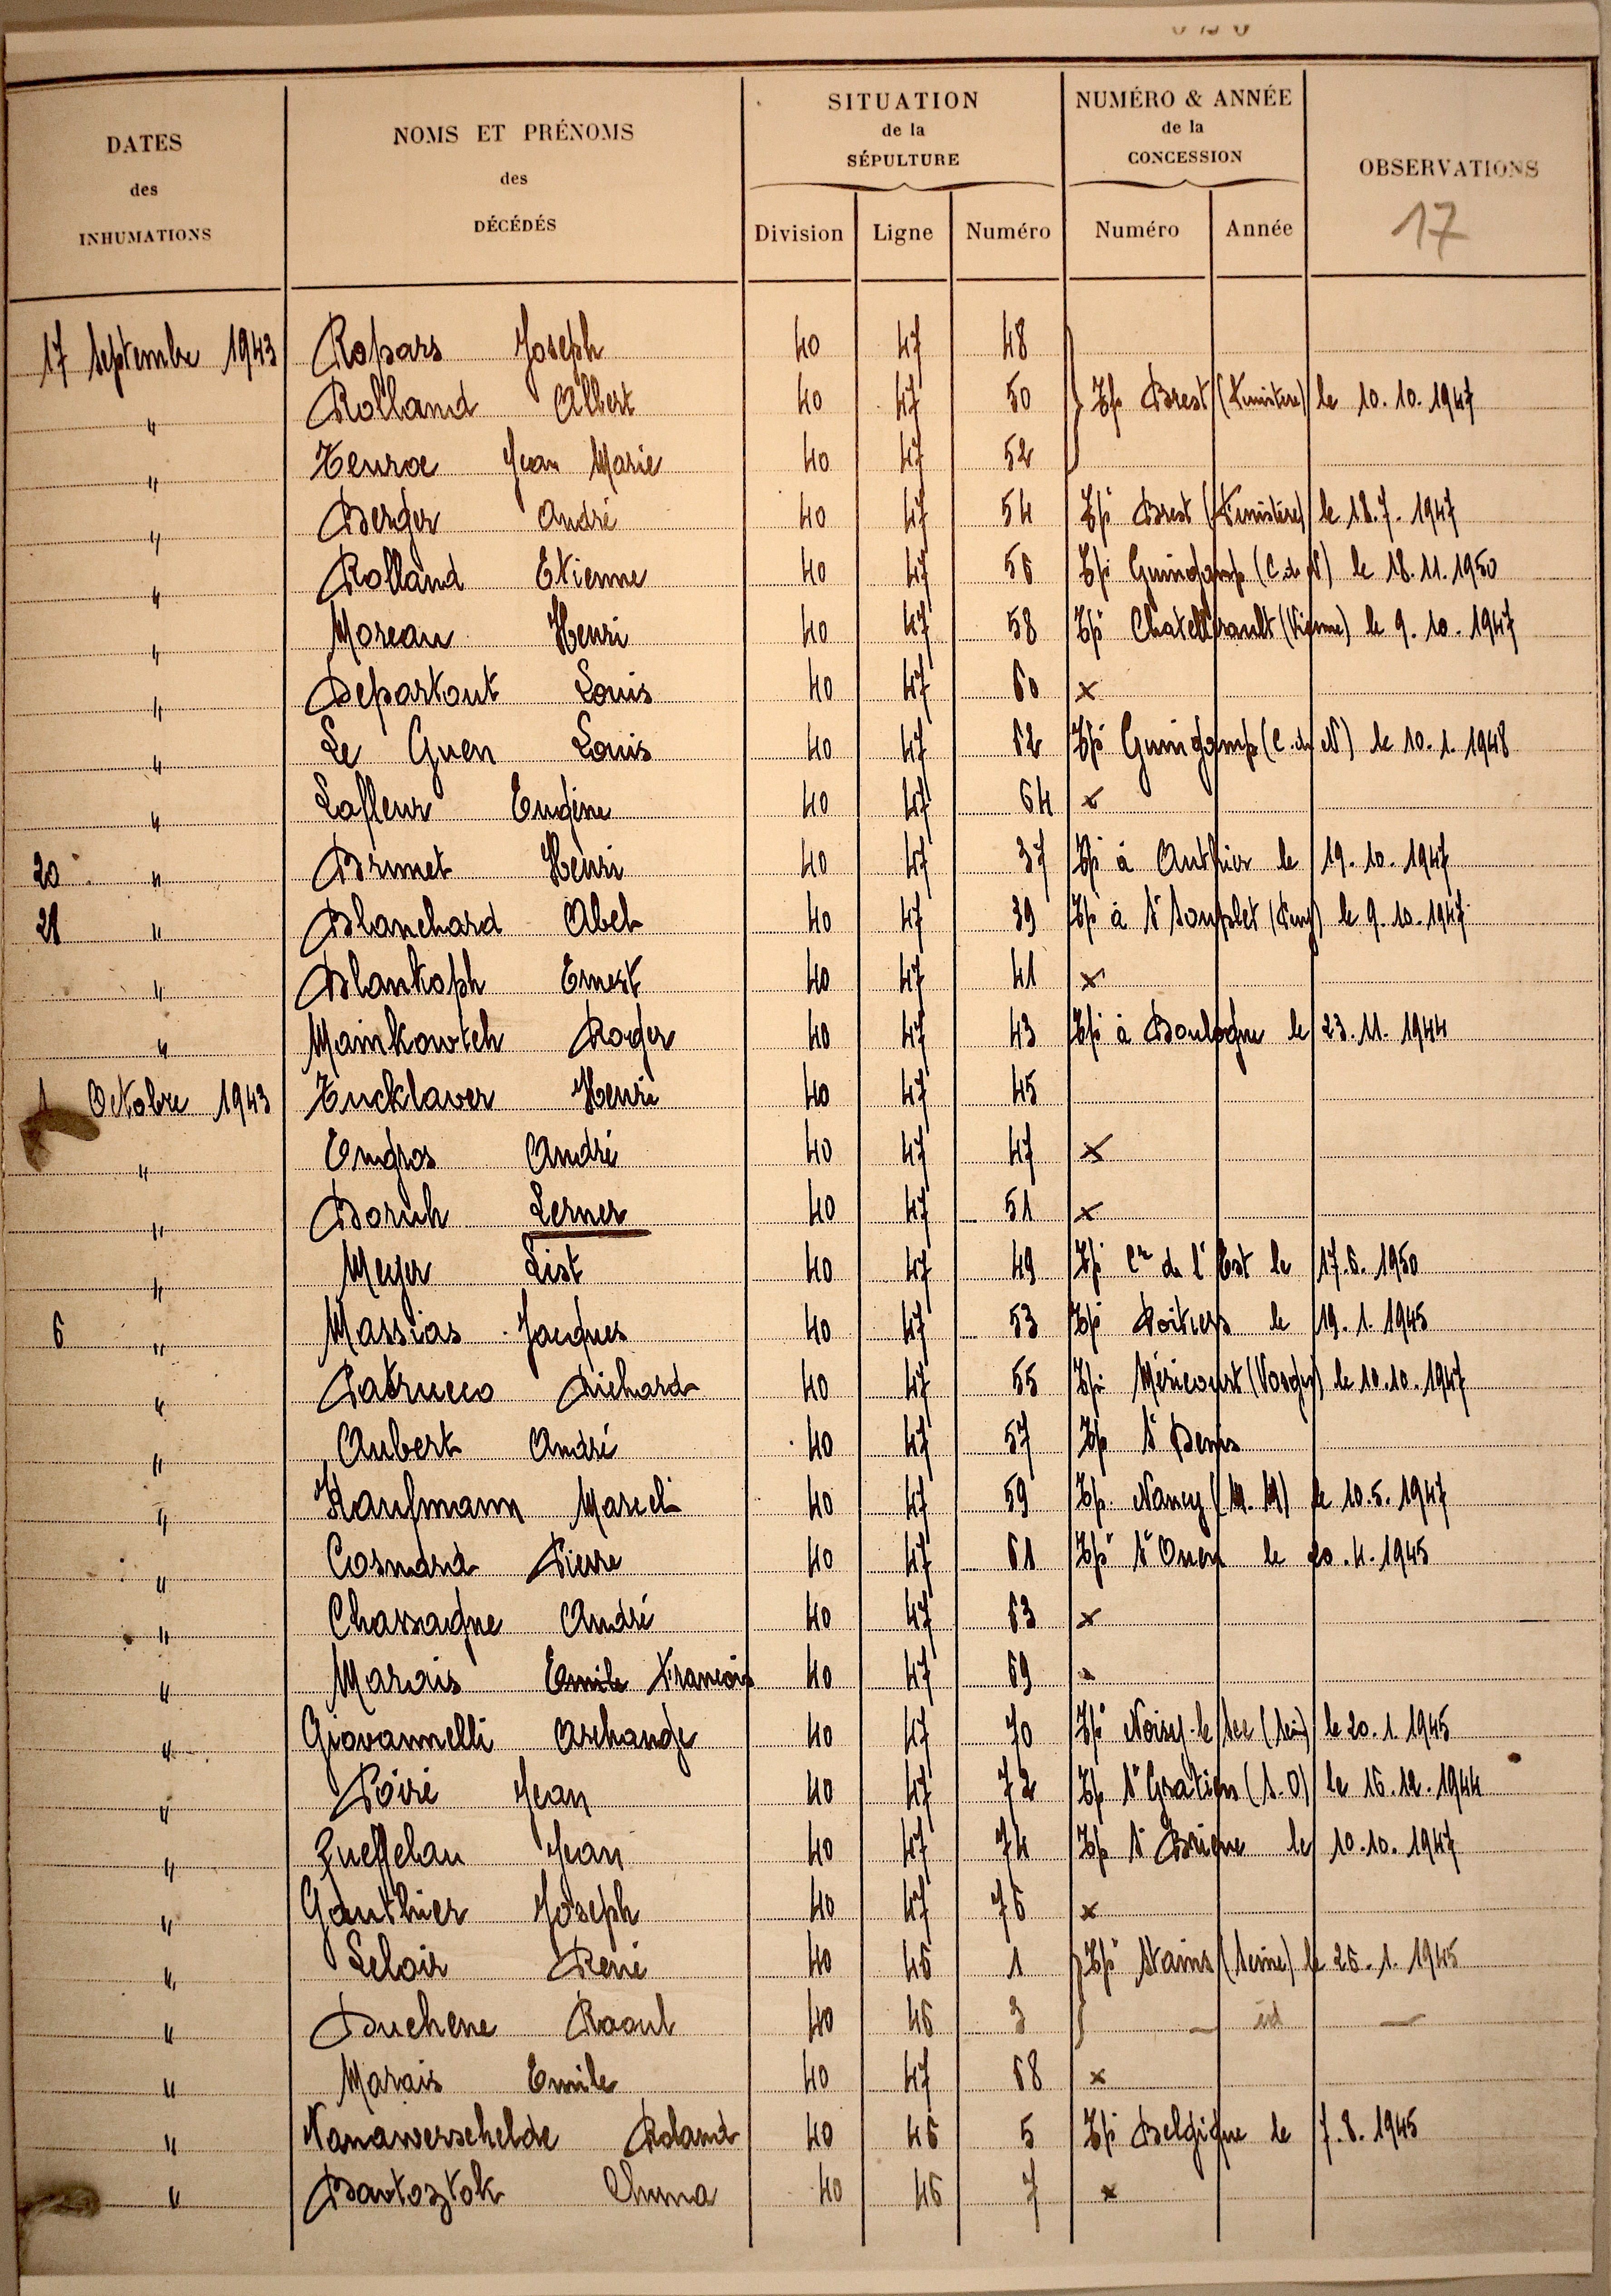 DATES
des
INHUMATIONS
NOMS ET PRÉNOMS
des
DÉCÉDÉS
SITUATION
de la
SÉPULTURE
Division Ligne Numéro
NUMÉRO & ANNÉE
de la
CONCESSION
Numéro Année
OBSERVATIONS
17
17 Septembre 1943 Ropars Joseph 40 47 48
" Rolland Albert 40 47 50 Tpé Brest (Finistère) le 10.10.1947
" Jean Marie 40 47 52
" Berger André 40 47 54 Tpé Brest (Finistère) le 18.7.1947
" Rolland Etienne 40 47 56 Tpé Guingamp (C. du N) le 18.11.1950
" Moreau Henri 40 47 58 Tpé Chatellerault (Vienne) le 9.10.1947
" Departout Louis 40 47 60 x
" Le Guen Louis 40 47 62 Tpé Guingamp (C. du N) le 10.1.1948
" Lafleur Eugène 40 47 64 x
20 " Brunet Henri 40 47 37 Tpé à le 19.10.1947
21 " Blanchard Abel 40 47 39 Tpé à St Souplet le 9.10.1947
" Blankoph Ernest 40 47 41 x
" Mainkowtch Roger 40 47 43 Tpé à Boulogne le 23.11.1944
1 Octobre 1943 Tucklaver Henri 40 47 45
" Engros André 40 47 47 x
" Boruh Lerner 40 47 51 x
" Meyer List 40 47 49 Tpé Cre de l'Est le 17.6.1950
6 " Massias Jacques 40 47 53 Tpé Poitiers le 19.1.1945
" Patrucco Richard 40 47 55 Tpé Méricourt (Vosges) le 10.10.1947
" Aubert André 40 47 57 Tpé St Denis
" Kaufmann Marcel 40 47 59 Tpé Nancy (M.M) le 10.5.1947
" Cosnard Pierre 40 47 61 Tpé St Ouen le 20.4.1945
" Chassagne André 40 47 63 x
" Marais Emile François 40 47 69 x
" Giovannelli Archange 40 47 70 Tpé Noisy-le Sec (Seine) le 20.1.1945
" Poiré Jean 40 47 72 Tpé St Gratien (S.O) le 16.12.1944
" Queffelau Jean 40 47 74 Tpé St Brieuc le 10.10.1947
" Gauthier Joseph 40 47 76 x
" Leloir René 40 46 1 Tpé Stains (Seine) le 26.1.1945
" Duchene Raoul 40 46 3 — id —
" Marais Emile 40 47 68 x
" Vanawerschelde Roland 40 46 5 Tpé Belgique le 7.8.1945
" Bartoztok Chuna 40 46 7 x